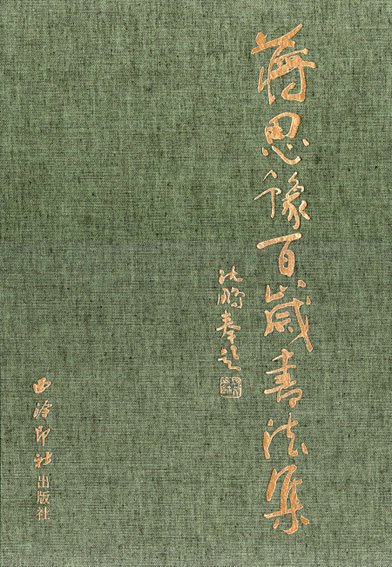 蒋思豫百岁书法集
沈鹏奉题
西泠印社出版社